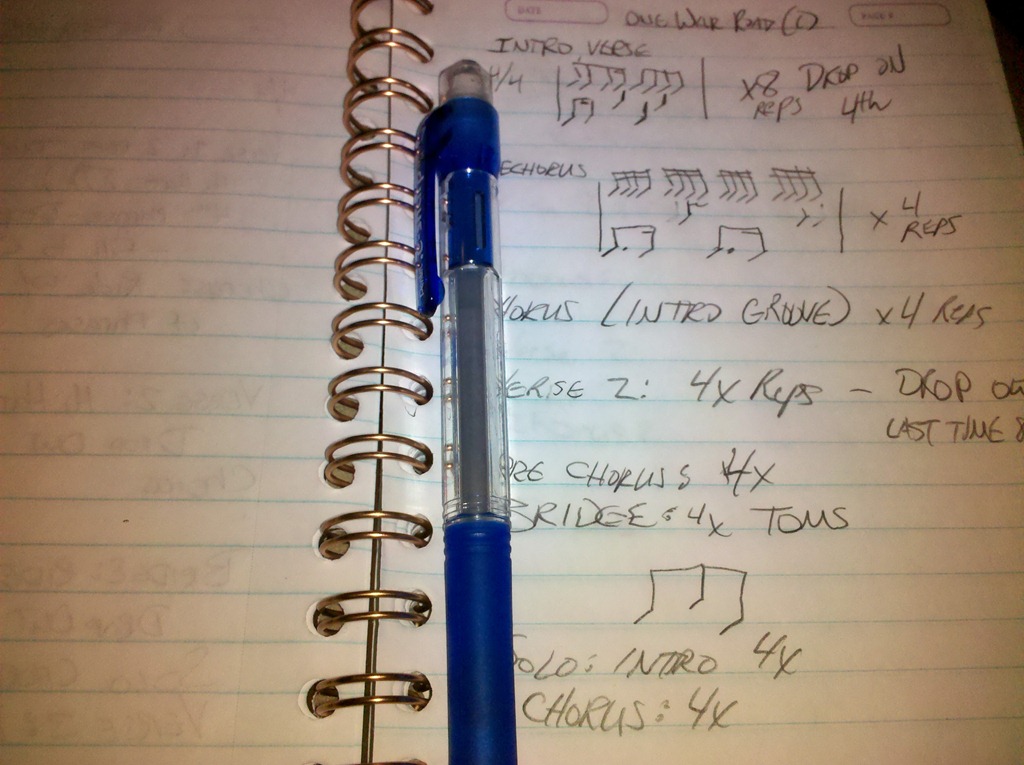 ONE WAY ROAD (C)
INTRO, VERSE
4/4 X8 DROP ON
REPS 4th
ECHORUS
X 4
REPS
HORUS (INTRO GROOVE) X4 REPS
VERSE 2: 4X Reps - DROP ON
LAST TIME 8
RE CHORUS: 4X
BRIDGE: 4X TOMS
SOLO: INTRO 4X
CHORUS: 4X